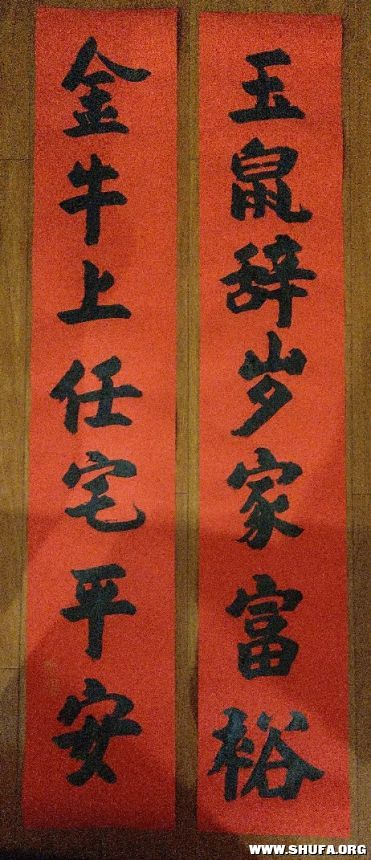 玉鼠辞岁家富裕
金牛上任宅平安
WWW.SHUFA.ORG